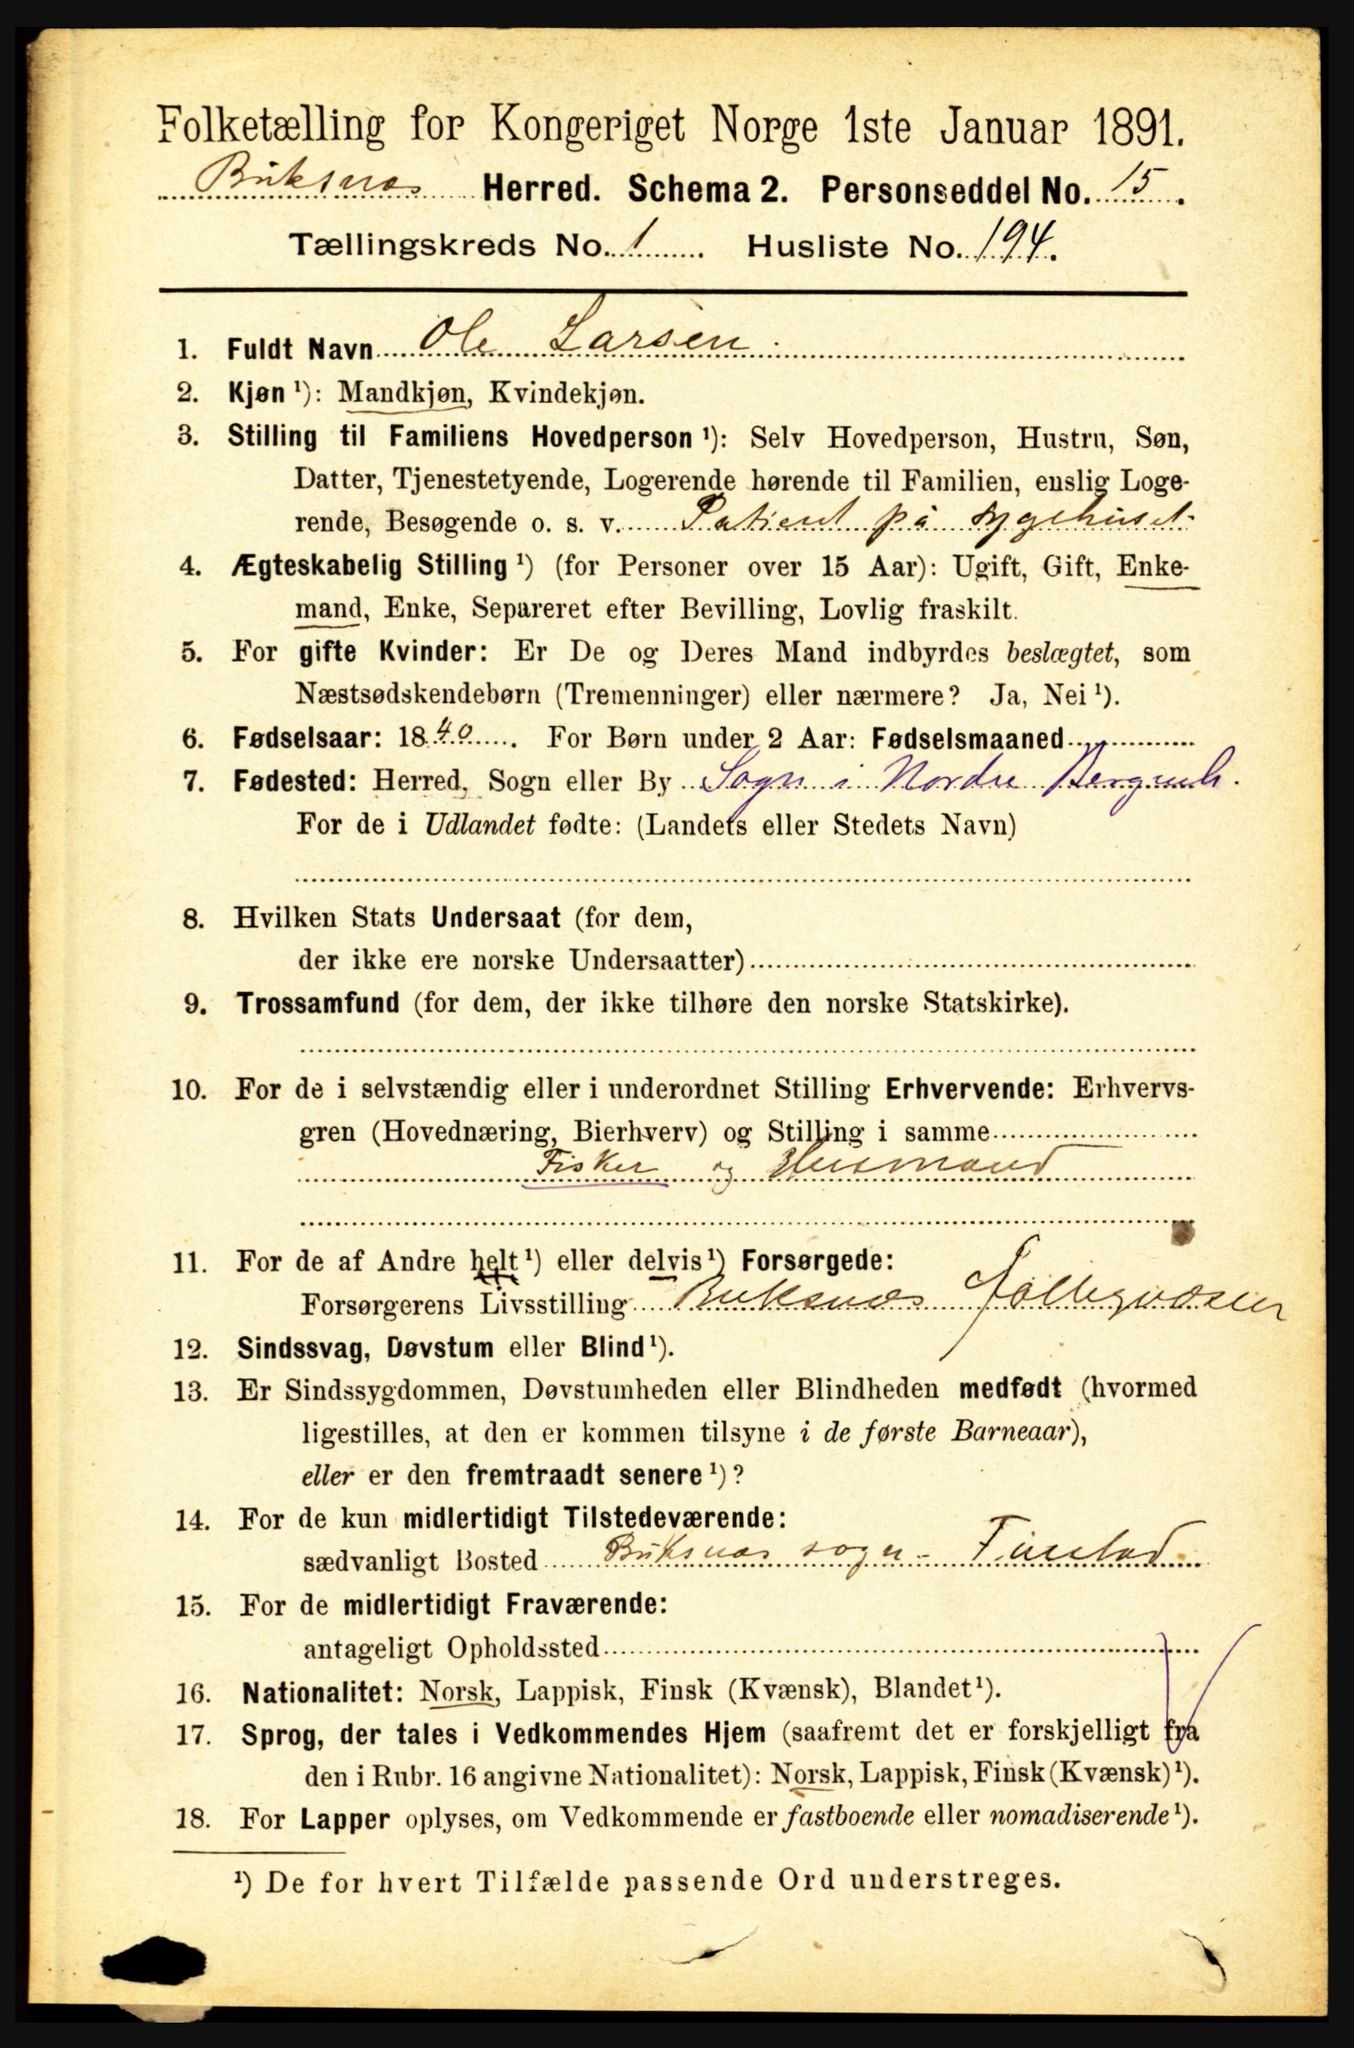 Folketælling for Kongeriget Norge 1ste Januar 1891.
Buksnæs Herred. Schema 2. Personseddel No. 15.
Tællingskreds No. 1. Husliste No. 194.
1. Fuldt Navn Ole Larsen
2. Kjøn ¹): Mandkjøn, Kvindekjøn.
3. Stilling til Familiens Hovedperson ¹): Selv Hovedperson, Hustru, Søn,
Datter, Tjenestetyende, Logerende hørende til Familien, enslig Loge-
rende, Besøgende o. s. v. Patient på sygehuset
4. Ægteskabelig Stilling ¹) (for Personer over 15 Aar): Ugift, Gift, Enke-
mand, Enke, Separeret efter Bevilling, Lovlig fraskilt.
5. For gifte Kvinder: Er De og Deres Mand indbyrdes beslægtet, som
Næstsødskendebørn (Tremenninger) eller nærmere? Ja, Nei ¹).
6. Fødselsaar: 1840. For Børn under 2 Aar: Fødselsmaaned
7. Fødested: Herred, Sogn eller By Sogn i Nordre
For de i Udlandet fødte: (Landets eller Stedets Navn)
8. Hvilken Stats Undersaat (for dem,
der ikke ere norske Undersaatter)
9. Trossamfund (for dem, der ikke tilhøre den norske Statskirke).
10. For de i selvstændig eller i underordnet Stilling Erhvervende: Erhvervs-
gren (Hovednæring, Bierhverv) og Stilling i samme
Fisker og Husmand
11. For de af Andre helt ¹) eller delvis ¹) Forsørgede:
Forsørgerens Livsstilling Buksnæs
12. Sindssvag, Døvstum eller Blind ¹).
13. Er Sindssygdommen, Døvstumheden eller Blindheden medfødt (hvormed
ligestilles, at den er kommen tilsyne i de første Barneaar),
eller er den fremtraadt senere ¹)?
14. For de kun midlertidigt Tilstedeværende:
sædvanligt Bosted Buksnæs sogn -
15. For de midlertidigt Fraværende:
antageligt Opholdssted
16. Nationalitet: Norsk, Lappisk, Finsk (Kvænsk), Blandet ¹).
17. Sprog, der tales i Vedkommendes Hjem (saafremt det er forskjelligt fra
den i Rubr. 16 angivne Nationalitet): Norsk, Lappisk, Finsk (Kvænsk) ¹).
18. For Lapper oplyses, om Vedkommende er fastboende eller nomadiserende ¹).
¹) De for hvert Tilfælde passende Ord understreges.